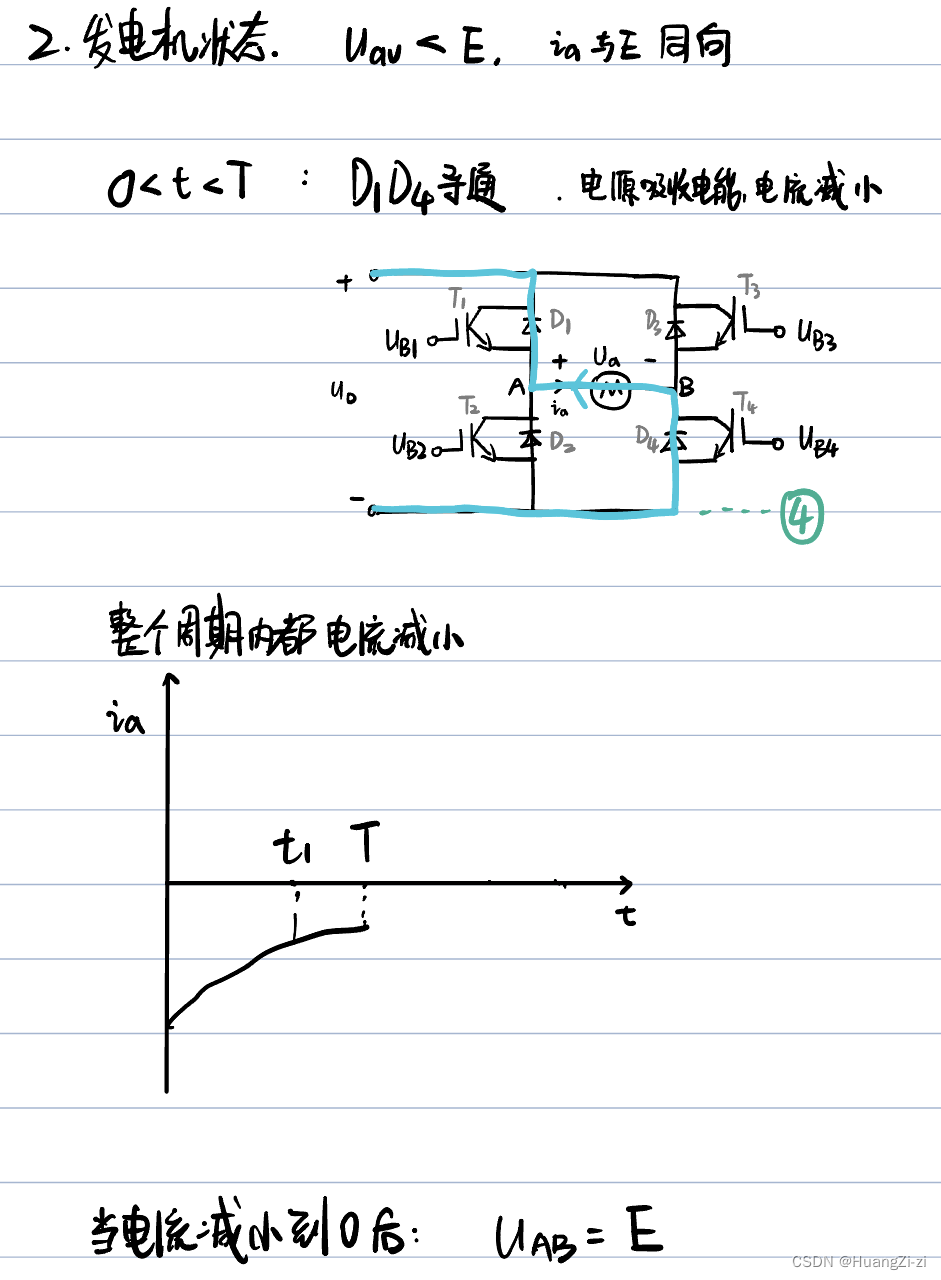 2. 发电机状态. Uav < E, ia与E 同向
0<t<T : D1D4导通 . 电源吸收电能,电流减小
+ T1 D1 D3 T3
UB1 + Ua - UB3
U0 A M B
ia
T2 T4
UB2 D2 D4 UB4
- ④
整个周期内都电流减小
ia
t1 T
t
当电流减小到0后: UAB = E
CSDN @HuangZi-zi